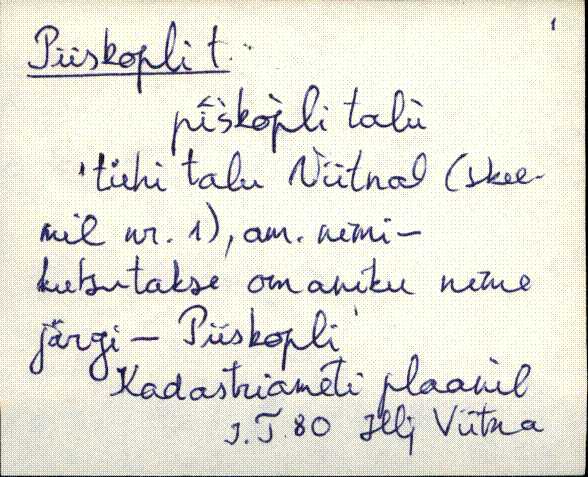 1
Piiskopli t.
pi̮i̮skòpli talù
'tühi talu Viitnal (skee-
mil nr. 1), am. nimi –
kutsutakse omaniku nime
järgi – Piiskopli'
Kadastriameti plaanil
J.T. 80 Hlj Viitna